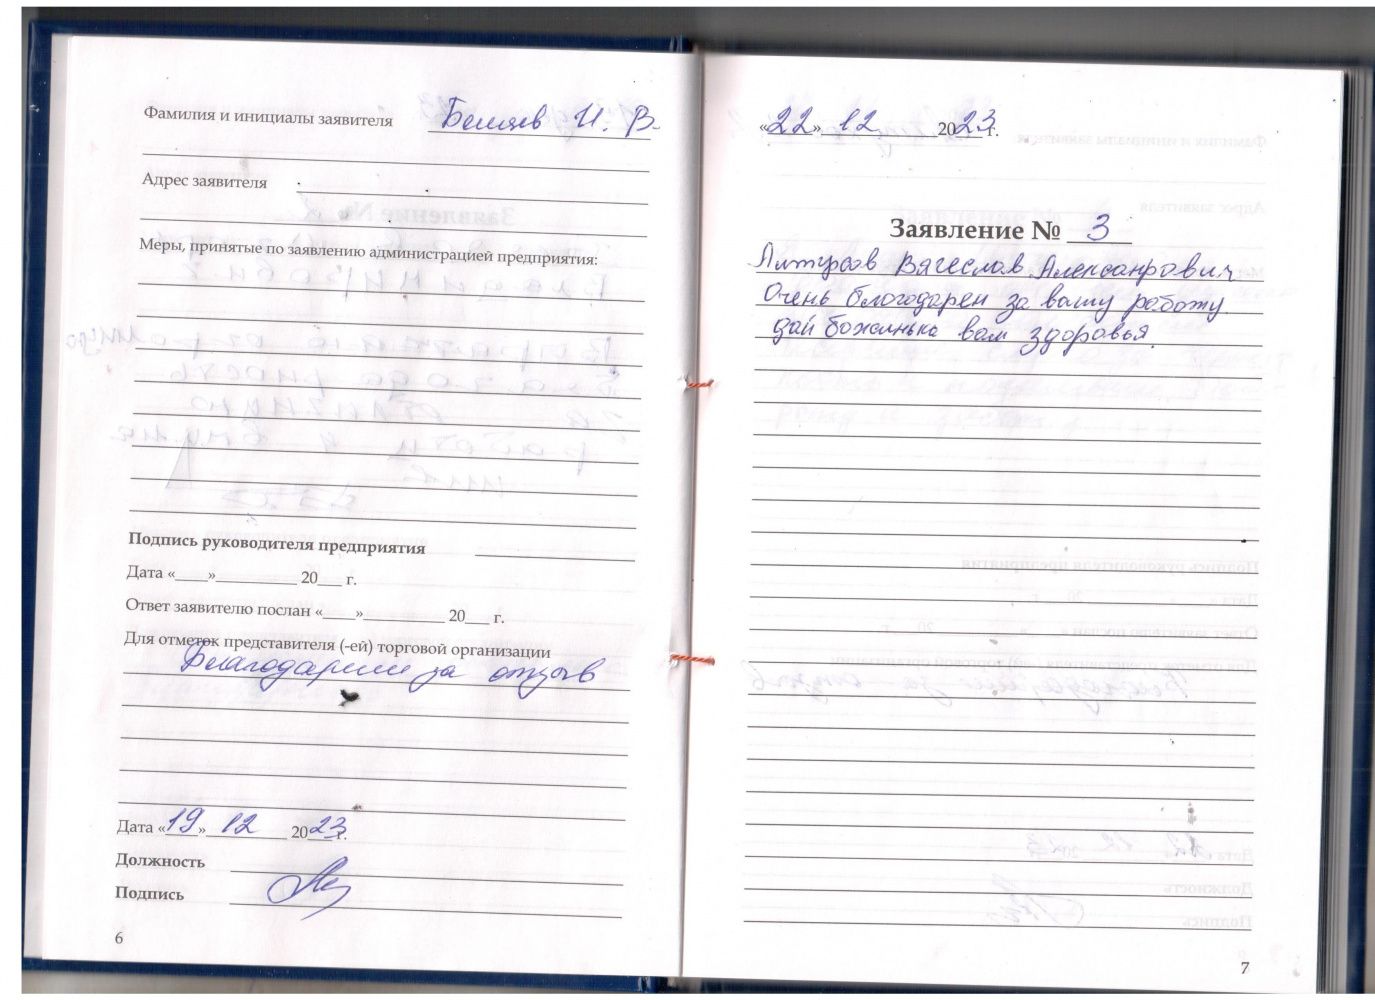 Фамилия и инициалы заявителя Беляев И. В.
Адрес заявителя
Меры, принятые по заявлению администрацией предприятия:
Подпись руководителя предприятия
Дата «____»__________ 20___ г.
Ответ заявителю послан «____»__________ 20___ г.
Для отметок представителя (-ей) торговой организации
Благодарим за отзыв
Дата «19» 12 2023 г.
Должность
Подпись
6
«22» 12 2023 г.
Заявление № 3
Вячеслав Алексанрович
Очень благодарен за вашу работу.
дай боженька вам здоровья.
7